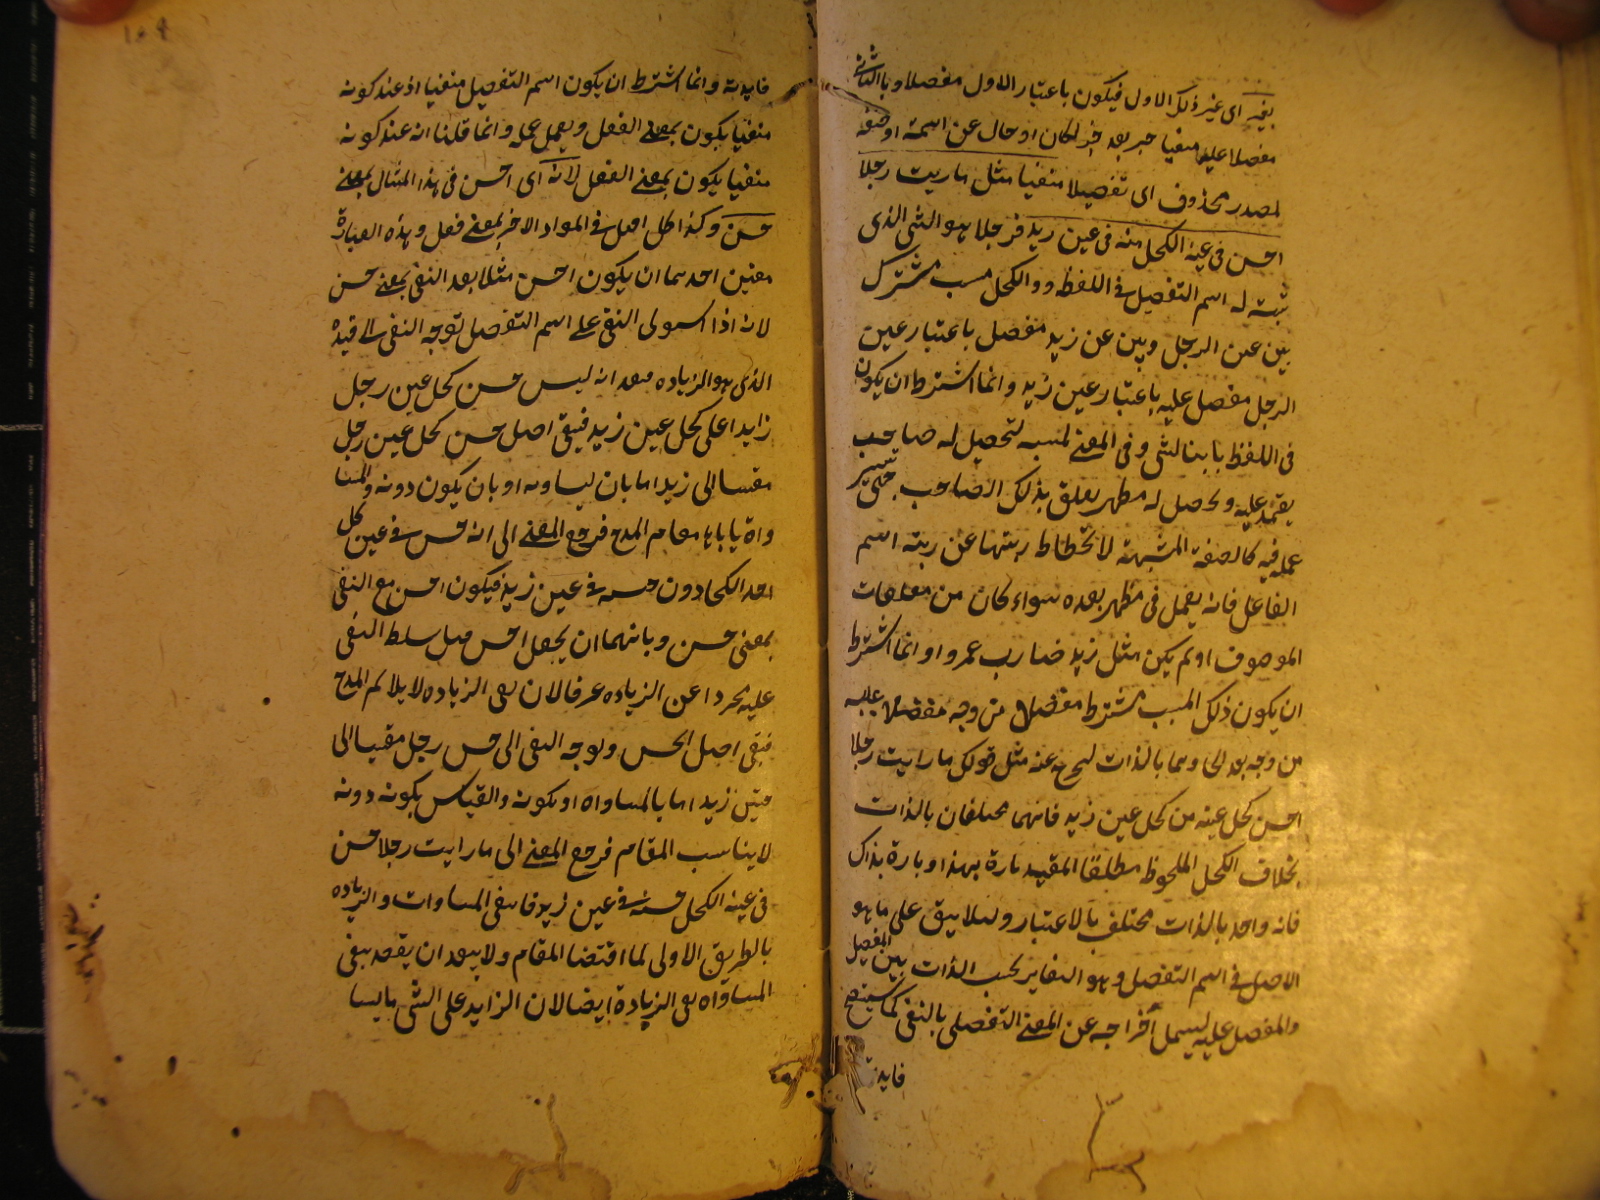 بغيره اى غير ذلك الاول فيكون باعتبار الاول مفضلا وبالثانى
مفضلا عليه منفيا خبر بعد خبر لكان او حال عن اسمه او صفة
لمصدر محذوف اى تفضيلا منفيا مثل ما رايت رجلا
احسن فى عينه الكحل منه فى عين زيد فرجلا هو الشئ الذى
ثبت له اسم التفضيل فى اللفظ والكحل مسبب مشترك
بين عين الرجل وبين عين زيد مفضل باعتبار عين
الرجل مفضل عليه باعتبار عين زيد وانما اشترط ان يكون
فى اللفظ ثابتا لشئ وفى المعنى لمسببه لتحصيل له صاحب
يعتمد عليه ويحصل له مظهر تعلق بذلك الصاحب حتى تيسر
عمله فيه كالصفة المشبهة لانحطاط رتبتها عن رتبة اسم
الفاعل فانه يعمل فى مظهر بعده سواء كان من متعلقات
الموصوف او لم يكن مثل زيد ضارب عمروا وانما اشترط
ان يكون ذلك المسبب مشتركا مفضلا من وجه مفضلا عليه
من وجه بعد اتحادهما بالذات ليخرج عنه مثل قولك ما رايت رجلا
احسن كحل عينه من كحل عين زيد فانهما مختلفان بالذات
بخلاف الكحل الملحوظ مطلقا المقيد تارة بهذا وتارة بذاك
فانه واحد بالذات مختلف بالاعتبار ولئلا يبقى على ما هو
الاصل فى اسم التفضيل وهو التغاير بحسب الذات بين المفضل
والمفضل عليه ليسهل اخراجه عن المعنى التفضيلى بالنفى كما سيتضح
فايدته
١٠٩
فايدته وانما اشترط ان يكون اسم التفضيل منفيا اذ عند كونه
منفيا يكون بمعنى الفعل ويعمل عمله وانما قلنا انه عند كونه
منفيا يكون بمعنى الفعل لانه اى احسن فى هذا المثال بمعنى
حسن وكذا كل افعل فى المواد الاخر بمعنى فعل وهذه العبارة
معنين احدهما ان يكون احسن مثلا بعد النفى بمعنى حسن
لانه اذا استولى النفى على اسم التفضيل توجه النفى الى قيده
الذى هو الزيادة فيفيد انه ليس حسن كحل عين رجل
زايدا على كحل عين زيد فبقى اصل حسن كحل عين رجل
مقيسا الى زيد اما بان يساويه او بان يكون دونه والمسا
واة ياباها مقام المدح فرجع المعنى الى انه حسن فى عين كل
احد الكحل دون حسنه فى عين زيد فيكون احسن مع النفى
بمعنى حسن وثانيهما ان يجعل احسن قبل تسلط النفى
عليه مجردا عن الزيادة عرفا لان نفى الزيادة لا يلائم المدح
فبقى اصل الحسن وتوجه النفى الى حسن رجل مقيسا الى
عين زيد اما بالمساواة او بكونه والقياس بكونه دونه
لا يناسب المقام فرجع المعنى الى ما رايت رجلا حسن
فى عينه الكحل حسنه فى عين زيد فانتفى المساوات والزيادة
بالطريق الاولى لما اقتضا المقام ولا يبعد ان يقصد بنفى
المساواة نفى الزيادة ايضا لان الزايد على الشئ مايسا